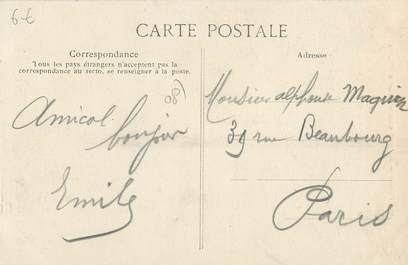 6-€
CARTE POSTALE
Correspondance
Tous les pays étrangers n'acceptent pas la
correspondance au recto, se renseigner à la poste.
Amical
bonjour
Emile
Adresse
Monsieur alphonse Maquin
39 rue Beaubourg
Paris